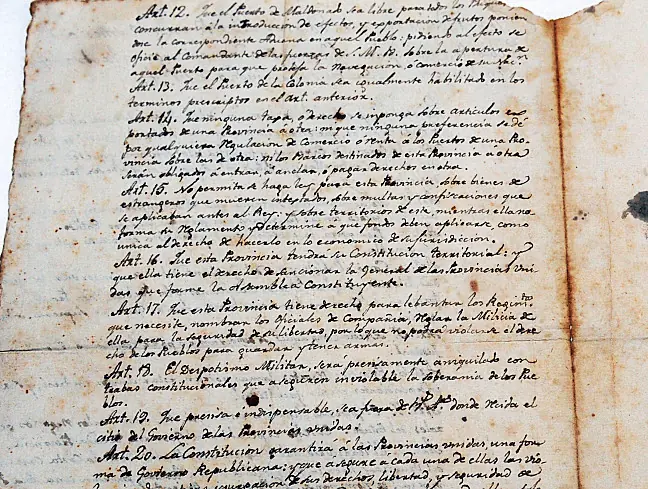 Art. 12. Que el Puerto de Maldonado sea libre para todos los Buques q.e
concurran á la introduccion de efectos, y exportacion de frutos ponien
dose la correspondiente Aduana en aquel Pueblo: pidiendo al efecto se
oficie al Comandante de las fuerzas de S.M.B. sobre la apertura de
aquel Puerto para que proteja la Navegacion ó Comercio de su Nac.n
Art. 13. Que el Puerto de la Colonia sea igualmente habilitado en los
terminos prescriptos en el Art. anterior.
Art. 14. Que ninguna tasa, ó derecho se imponga sobre articulos ex
portados de una Provincia á otra: ni que ninguna preferencia se dé
por qualquiera Regulacion de Comercio ó renta á los Puertos de una Pro
vincia sobre las de otra: ni los Barcos destinados de esta Provincia a otra
serán obligados á entrar, á anclar, ó pagar derechos en otra.
Art. 15. No permita se haga ley para esta Provincia, sobre bienes de
estrangeros que mueren intestados, sobre multas y confiscaciones que
se aplicaban antes al Rey: y sobre territorios de este, mientras ella no
forma su Reglamento y determine a que fondos deben aplicarse, como
unica al derecho de hacerlo en lo economico de su jurisdiccion.
Art. 16. Que esta Provincia tendra su Constitucion territorial: y
que ella tiene el derecho de sancionar la General de las Provincias uni
das que forme la Asamblea Constituyente.
Art. 17. Que esta Provincia tiene derecho para lebantar los Regim.tos
que necesite, nombrar los Oficiales de Compañia, reglar la Milicia de
ella para la seguridad de su libertad, por lo que no podrá violarse el dere
cho de los Pueblos para guardar y tener armas.
Art. 18. El Despotismo Militar, sera precisamente aniquilado con
trabas constitucionales que aseguren inviolable la soberania de los Pue
blos.
Art. 19. Que precisa é indispensable, sea fuera de B.s A.s donde recida el
citio del Govierno de las Provincias unidas.
Art. 20. La Constitucion garantirá á las Provincias unidas, una for
ma de Govierno Republicana; y que asegure á cada una de ellas las vio
de sus derechos, libertad, y seguridad de